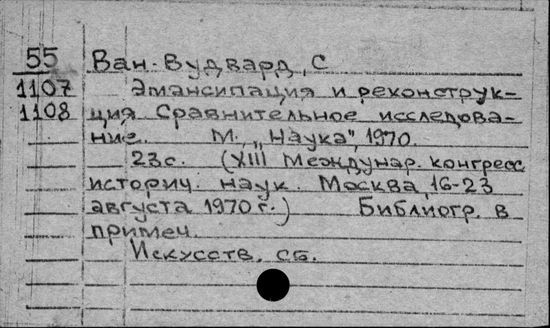 55 Ван-Вудвард, С
1107 Эмансипация и реконструк-
1108 ция Сравнительное исследова-
ние. М., „Наука", 1970.
23с. (XIII Междунар. конгресс
историч. наук. Москва, 16-23
августа 1970 г.) Библиогр. в
примеч.
Искусств. сб.